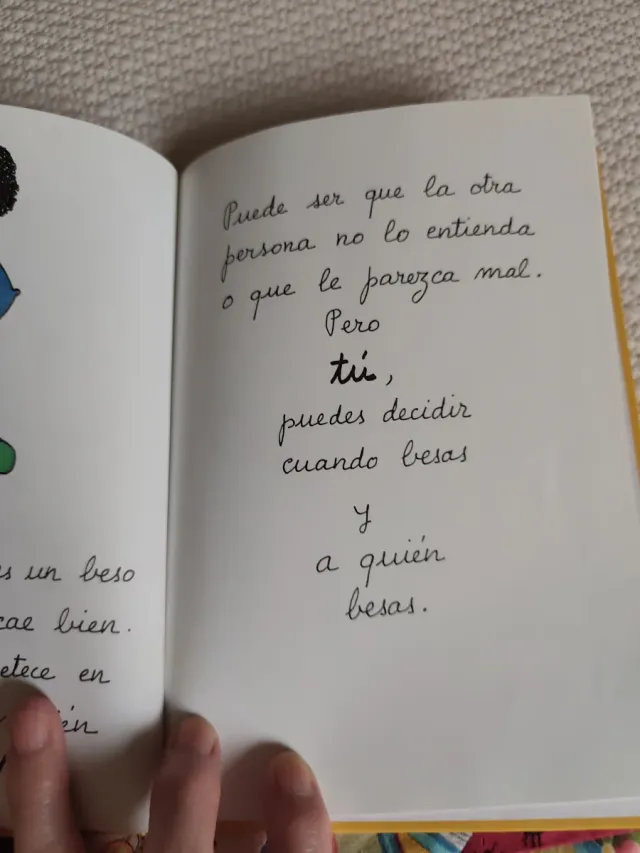 un beso
bien.
en
Puede ser que la otra
persona no lo entienda
o que le parezca mal.
Pero
tú,
puedes decidir
cuando besas
y
a quién
besas.